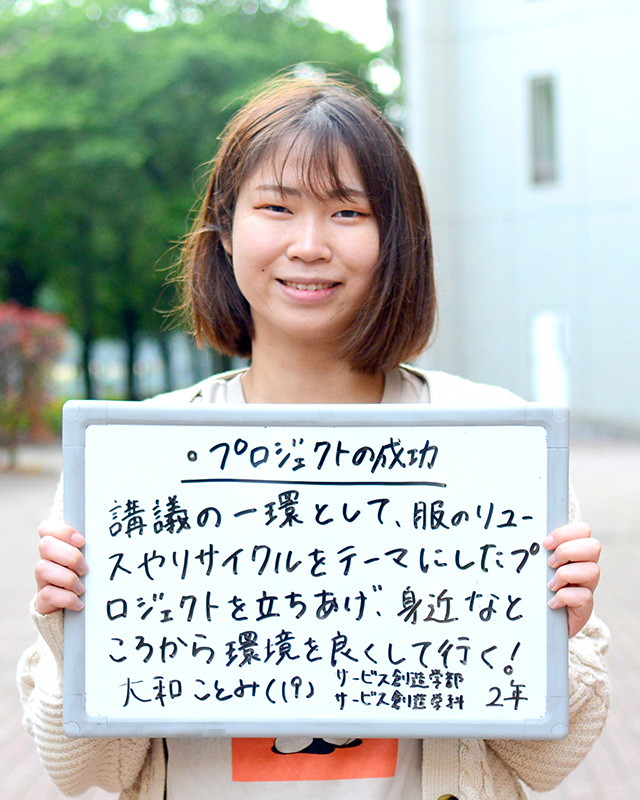 ◦プロジェクトの成功
講議の一環として、服のリユー
スやリサイクルをテーマにしたプ
ロジェクトを立ちあげ、身近なと
ころから環境を良くして行く!
大和 ことみ(19) サービス創造学部
サービス創造学科 2年